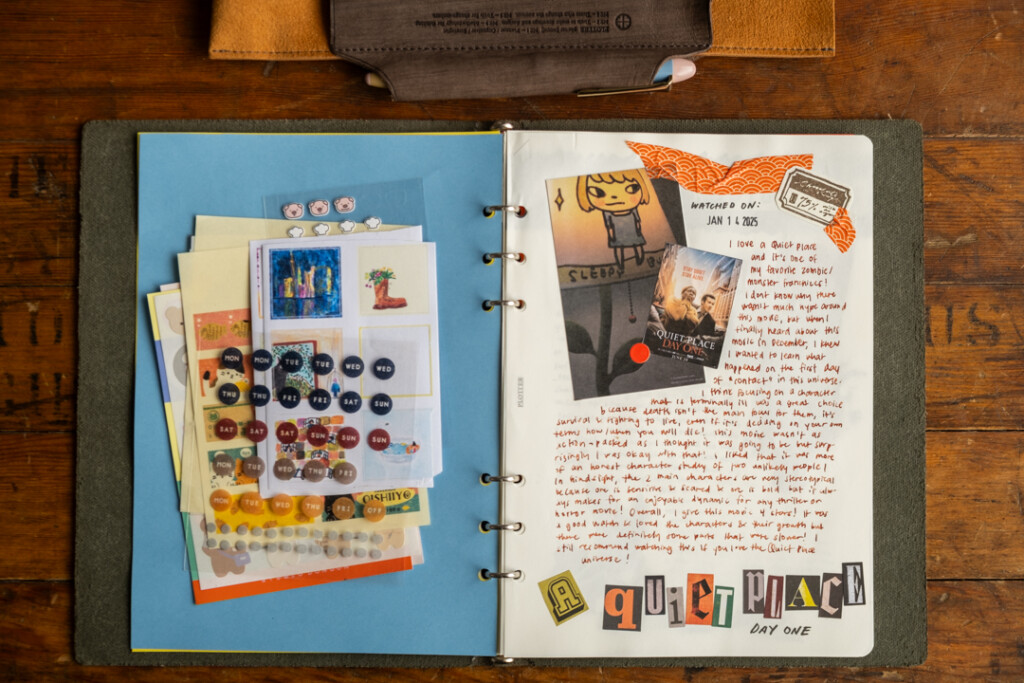 PLOTTER
MON MON TUE TUE WED WED
THU THU FRI FRI SAT SUN
SAT SAT SUN SUN SUN
MON TUE WED THU FRI
MON TUE WED THU FRI OFF
OISHIIYO
PLOTTER
SLEEPY
A QUIET PLACE
DAY ONE
WATCHED ON:
JAN 14 2025
I love a Quiet place
and it's one of
my favorite zombie/
monster franchises!
I don't know why there
wasn't much hype around
this movie, but when I
finally heard about this
movie in December, I knew
I wanted to learn what
happened on the first day
of "contact" in this universe.
I think focusing on a character
that is terminally ill was a great choice
because death isn't the main focus for them, it's
survival & fighting to live, even if it's deciding on your own
terms how/when you will die! This movie wasn't as
action-packed as I thought it was going to be but surp-
risingly I was okay with that! I liked that it was more
of an honest character study of two unlikely people!
In hindsight, the 2 main characters are very stereotypical
because one is sensitive & scared & one is bold but it alw-
ays makes for an enjoyable dynamic for any thriller or
horror movie! Overall, I give this movie 4 stars! It was
a good watch & loved the characters & their growth but
there were definitely some parts that were slower! I
still recommend watching this if you love the Quiet Place
universe!
A QUIET PLACE
DAY ONE